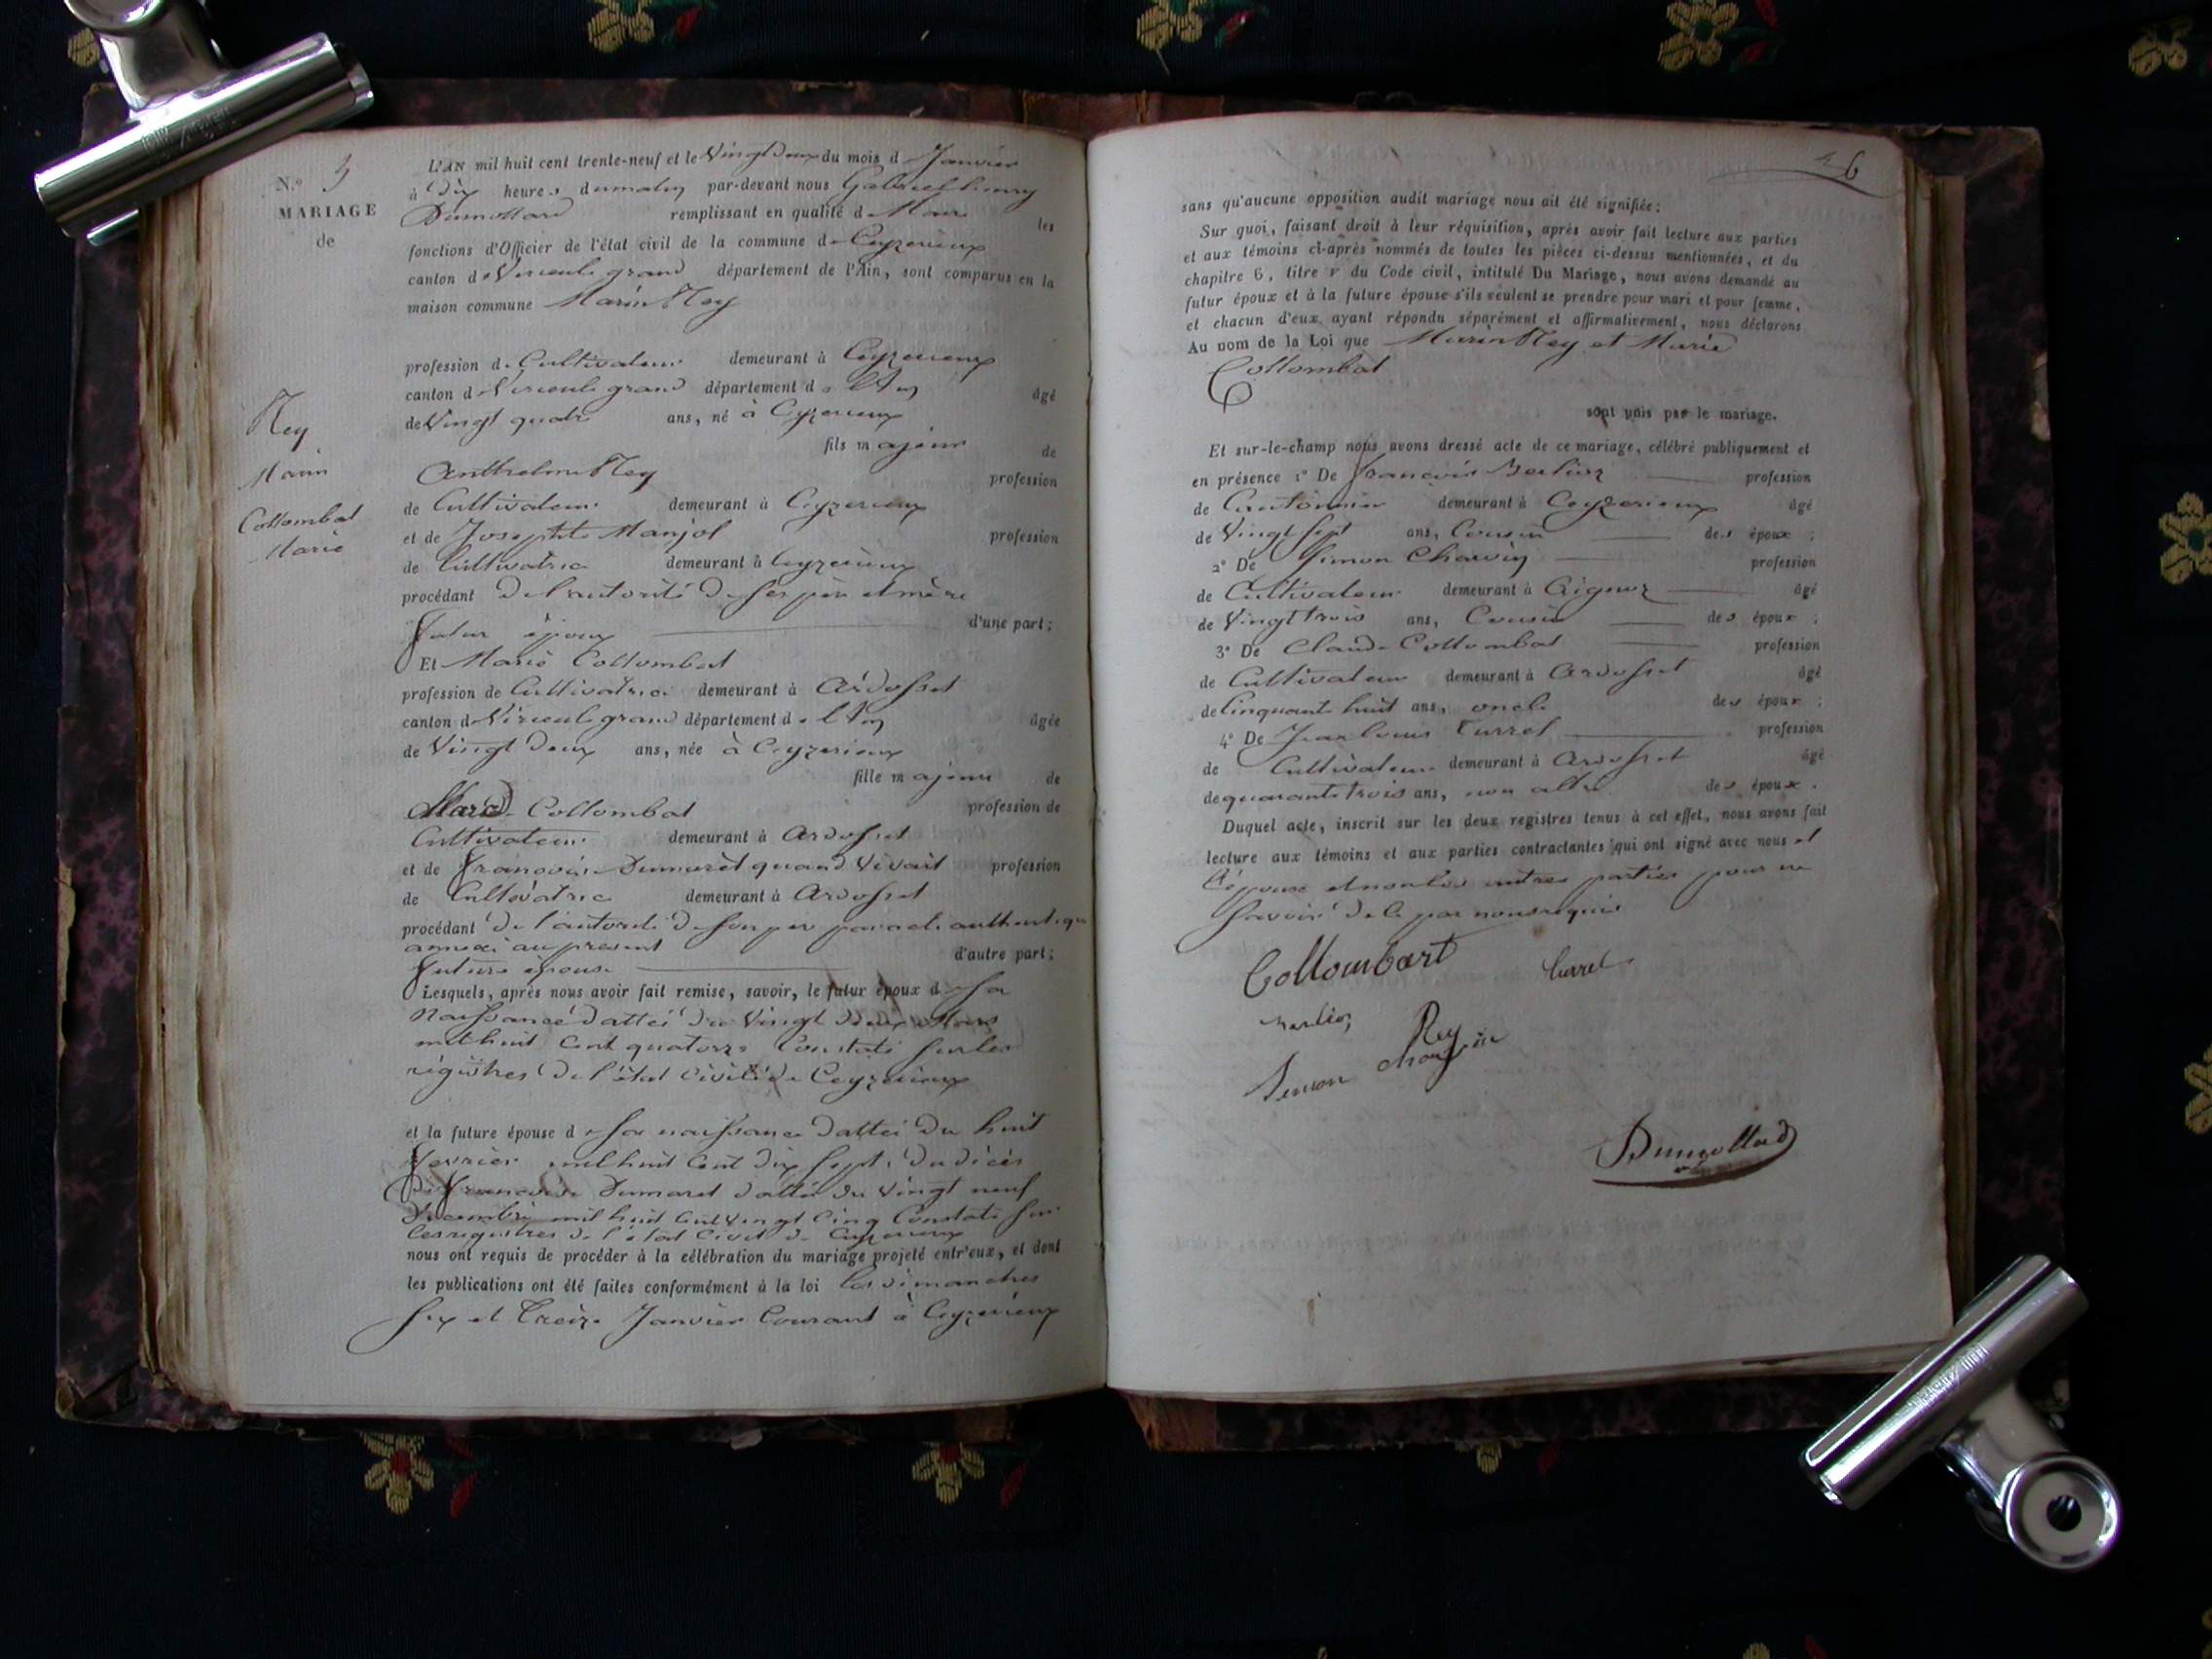 N.° 3
MARIAGE
de
Rey
Marin
Collombat
Marie
L'AN mil huit cent trente-neuf et le Vingt Deux du mois d Janvier
à Dix heures du matin par-devant nous Gabriel henry
Dumollard remplissant en qualité de Maire les
fonctions d'Officier de l'état civil de la commune de Ceyzerieux
canton de Virieu le grand département de l'Ain, sont comparus en la
maison commune Marin Rey
profession de Cultivateur demeurant à Ceyzerieux
canton de Virieu le grand département de l'Ain âgé
de Vingt quatre ans, né à Ceyzerieux
fils majeur de
Anthelme Rey profession
de Cultivateur demeurant à Ceyzerieux
et de Josephte Manjol profession
de Cultivatrice demeurant à Ceyzerieux
procédant De l'autorité De ses père et mère
futur époux d'une part;
Et Marie Collombat
profession de Cultivatrice demeurant à Ardosset
canton de Virieu le grand département de l'Ain âgée
de Vingt Deux ans, née à Ceyzerieux
fille majeure de
Collombat profession de
Cultivateur demeurant à Ardosset
et de françoise Dumaret quand Vivait profession
de Cultivatrice demeurant à Ardosset
procédant De l'autorité De son père par acte authentique
annexé au présent d'autre part;
future épouse
Lesquels, après nous avoir fait remise, savoir, le futur époux de sa
naissance Dattée Du Vingt Deux Mars
mil huit cent quatorze Constaté sur les
régistres De l'état Civil De Ceyzerieux
et la future épouse de sa naissance Dattée Du huit
fevrier mil huit Cent Dix sept, Du Décès
De françoise Dumaret Datté Du Vingt neuf
Decembre mil huit Cent Vingt Cinq Constaté sur
les registres De l'état Civil De Ceyzerieux
nous ont requis de procéder à la célébration du mariage projeté entr'eux, et dont
les publications ont été faites conformément à la loi les dimanches
six et Treize Janvier Courant à Ceyzerieux
6
sans qu'aucune opposition audit mariage nous ait été signifiée:
Sur quoi, faisant droit à leur réquisition, après avoir fait lecture aux parties
et aux témoins ci-après nommés de toutes les pièces ci-dessus mentionnées, et du
chapitre 6, titre v du Code civil, intitulé Du Mariage, nous avons demandé au
futur époux et à la future épouse s'ils veulent se prendre pour mari et pour femme,
et chacun d'eux ayant répondu séparément et affirmativement, nous déclarons
Au nom de la Loi que Marin Rey et Marie
Collombat
sont unis par le mariage.
Et sur-le-champ nous avons dressé acte de ce mariage, célébré publiquement et
en présence 1° De françois Berlioz profession
de Cantonnier demeurant à Ceyzerieux âgé
de Vingt sept ans, Cousin des époux;
2° De Simon Chavin profession
de Cultivateur demeurant à Aignoz âgé
de Vingt trois ans, Cousin des époux;
3° De Claude Collombat profession
de Cultivateur demeurant à Ardosset âgé
de Cinquante huit ans, oncle des époux;
4° De Jean louis Curret profession
de Cultivateur demeurant à Ardosset âgé
de quarante trois ans, non allié des époux.
Duquel acte, inscrit sur les deux registres tenus à cet effet, nous avons fait
lecture aux témoins et aux parties contractantes qui ont signé avec nous et
l'épouse et non les autres parties pour ne
savoir De ce par nous requis
Collombart
Curret
Berlioz
Rey
Simon Chavin
Dumollard